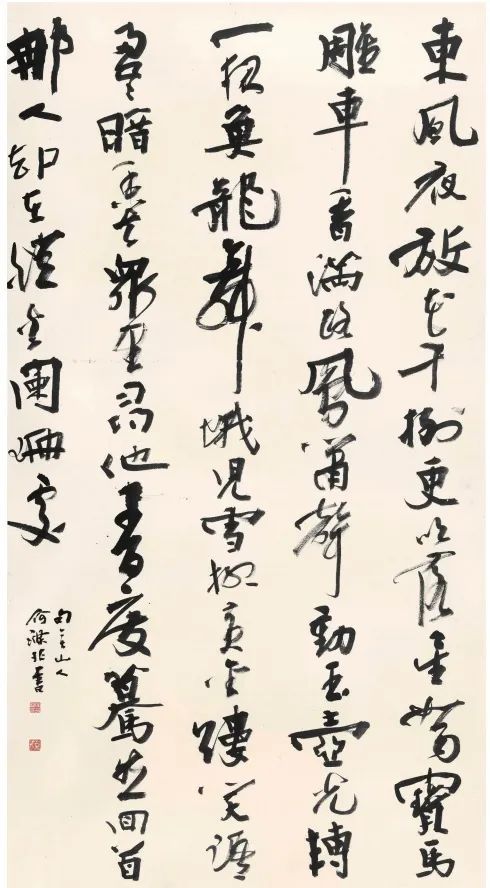 東風夜放花千樹更吹落星如雨寶馬
雕車香滿路鳳簫聲動玉壺光轉
一夜魚龍舞蛾兒雪柳黃金縷笑語
盈々暗香去衆里尋他千百度驀然回首
那人卻在燈火闌珊處
山人
何滌非書